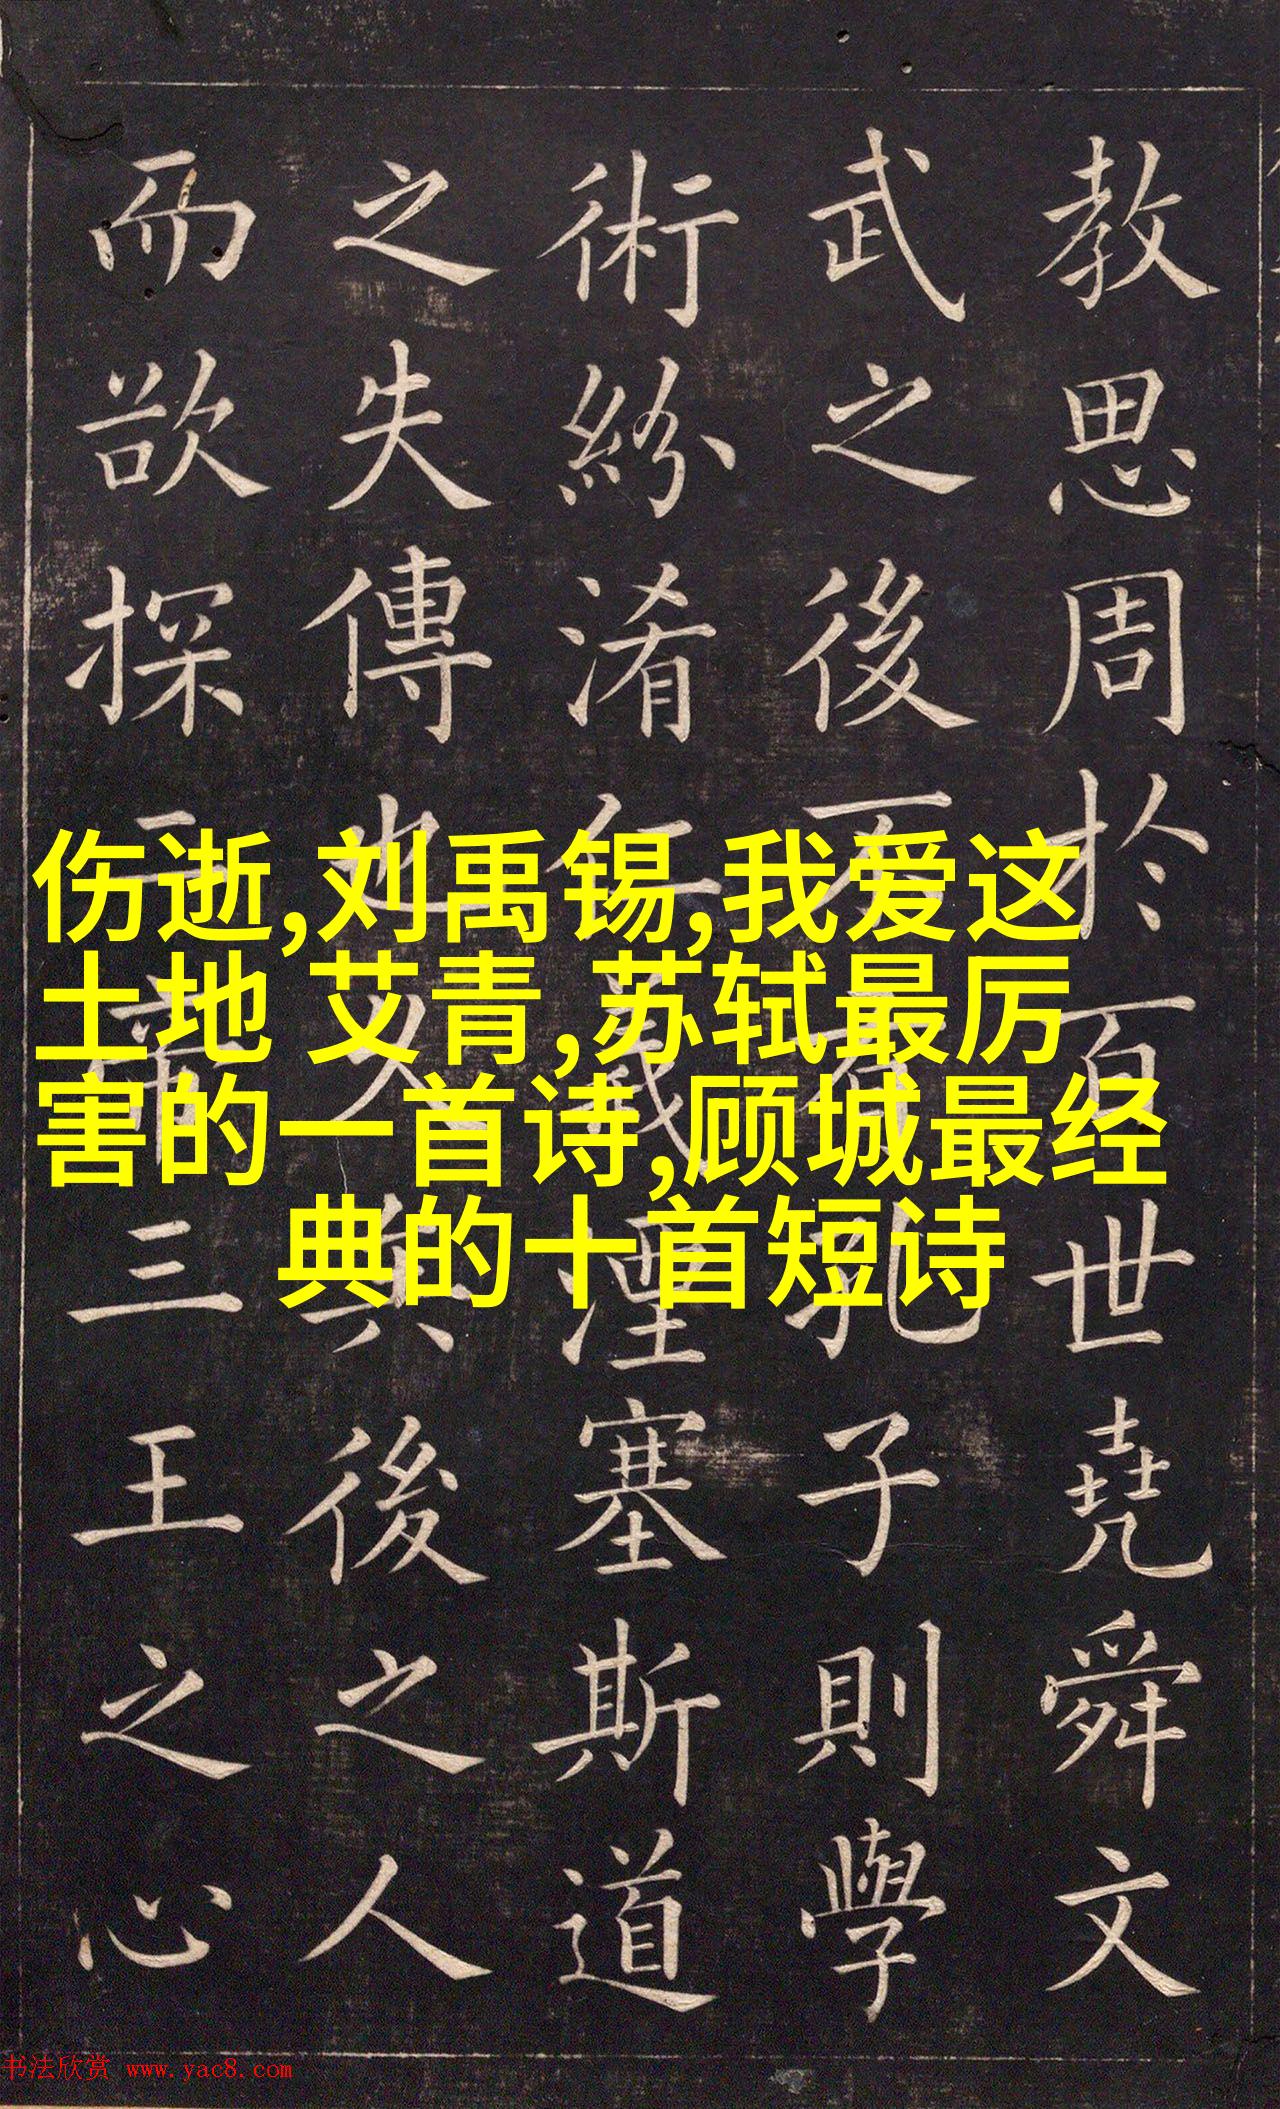 教思周於百世堯舜文
武之後不有孔子則學
術紛淆仁義湮塞斯道
之失傳也久矣後之人
而欲探二帝三王之心
伤逝,刘禹锡,我爱这
土地 艾青,苏轼最厉
害的一首诗,顾城最经
典的十首短诗
书法欣赏 www.yac8.com